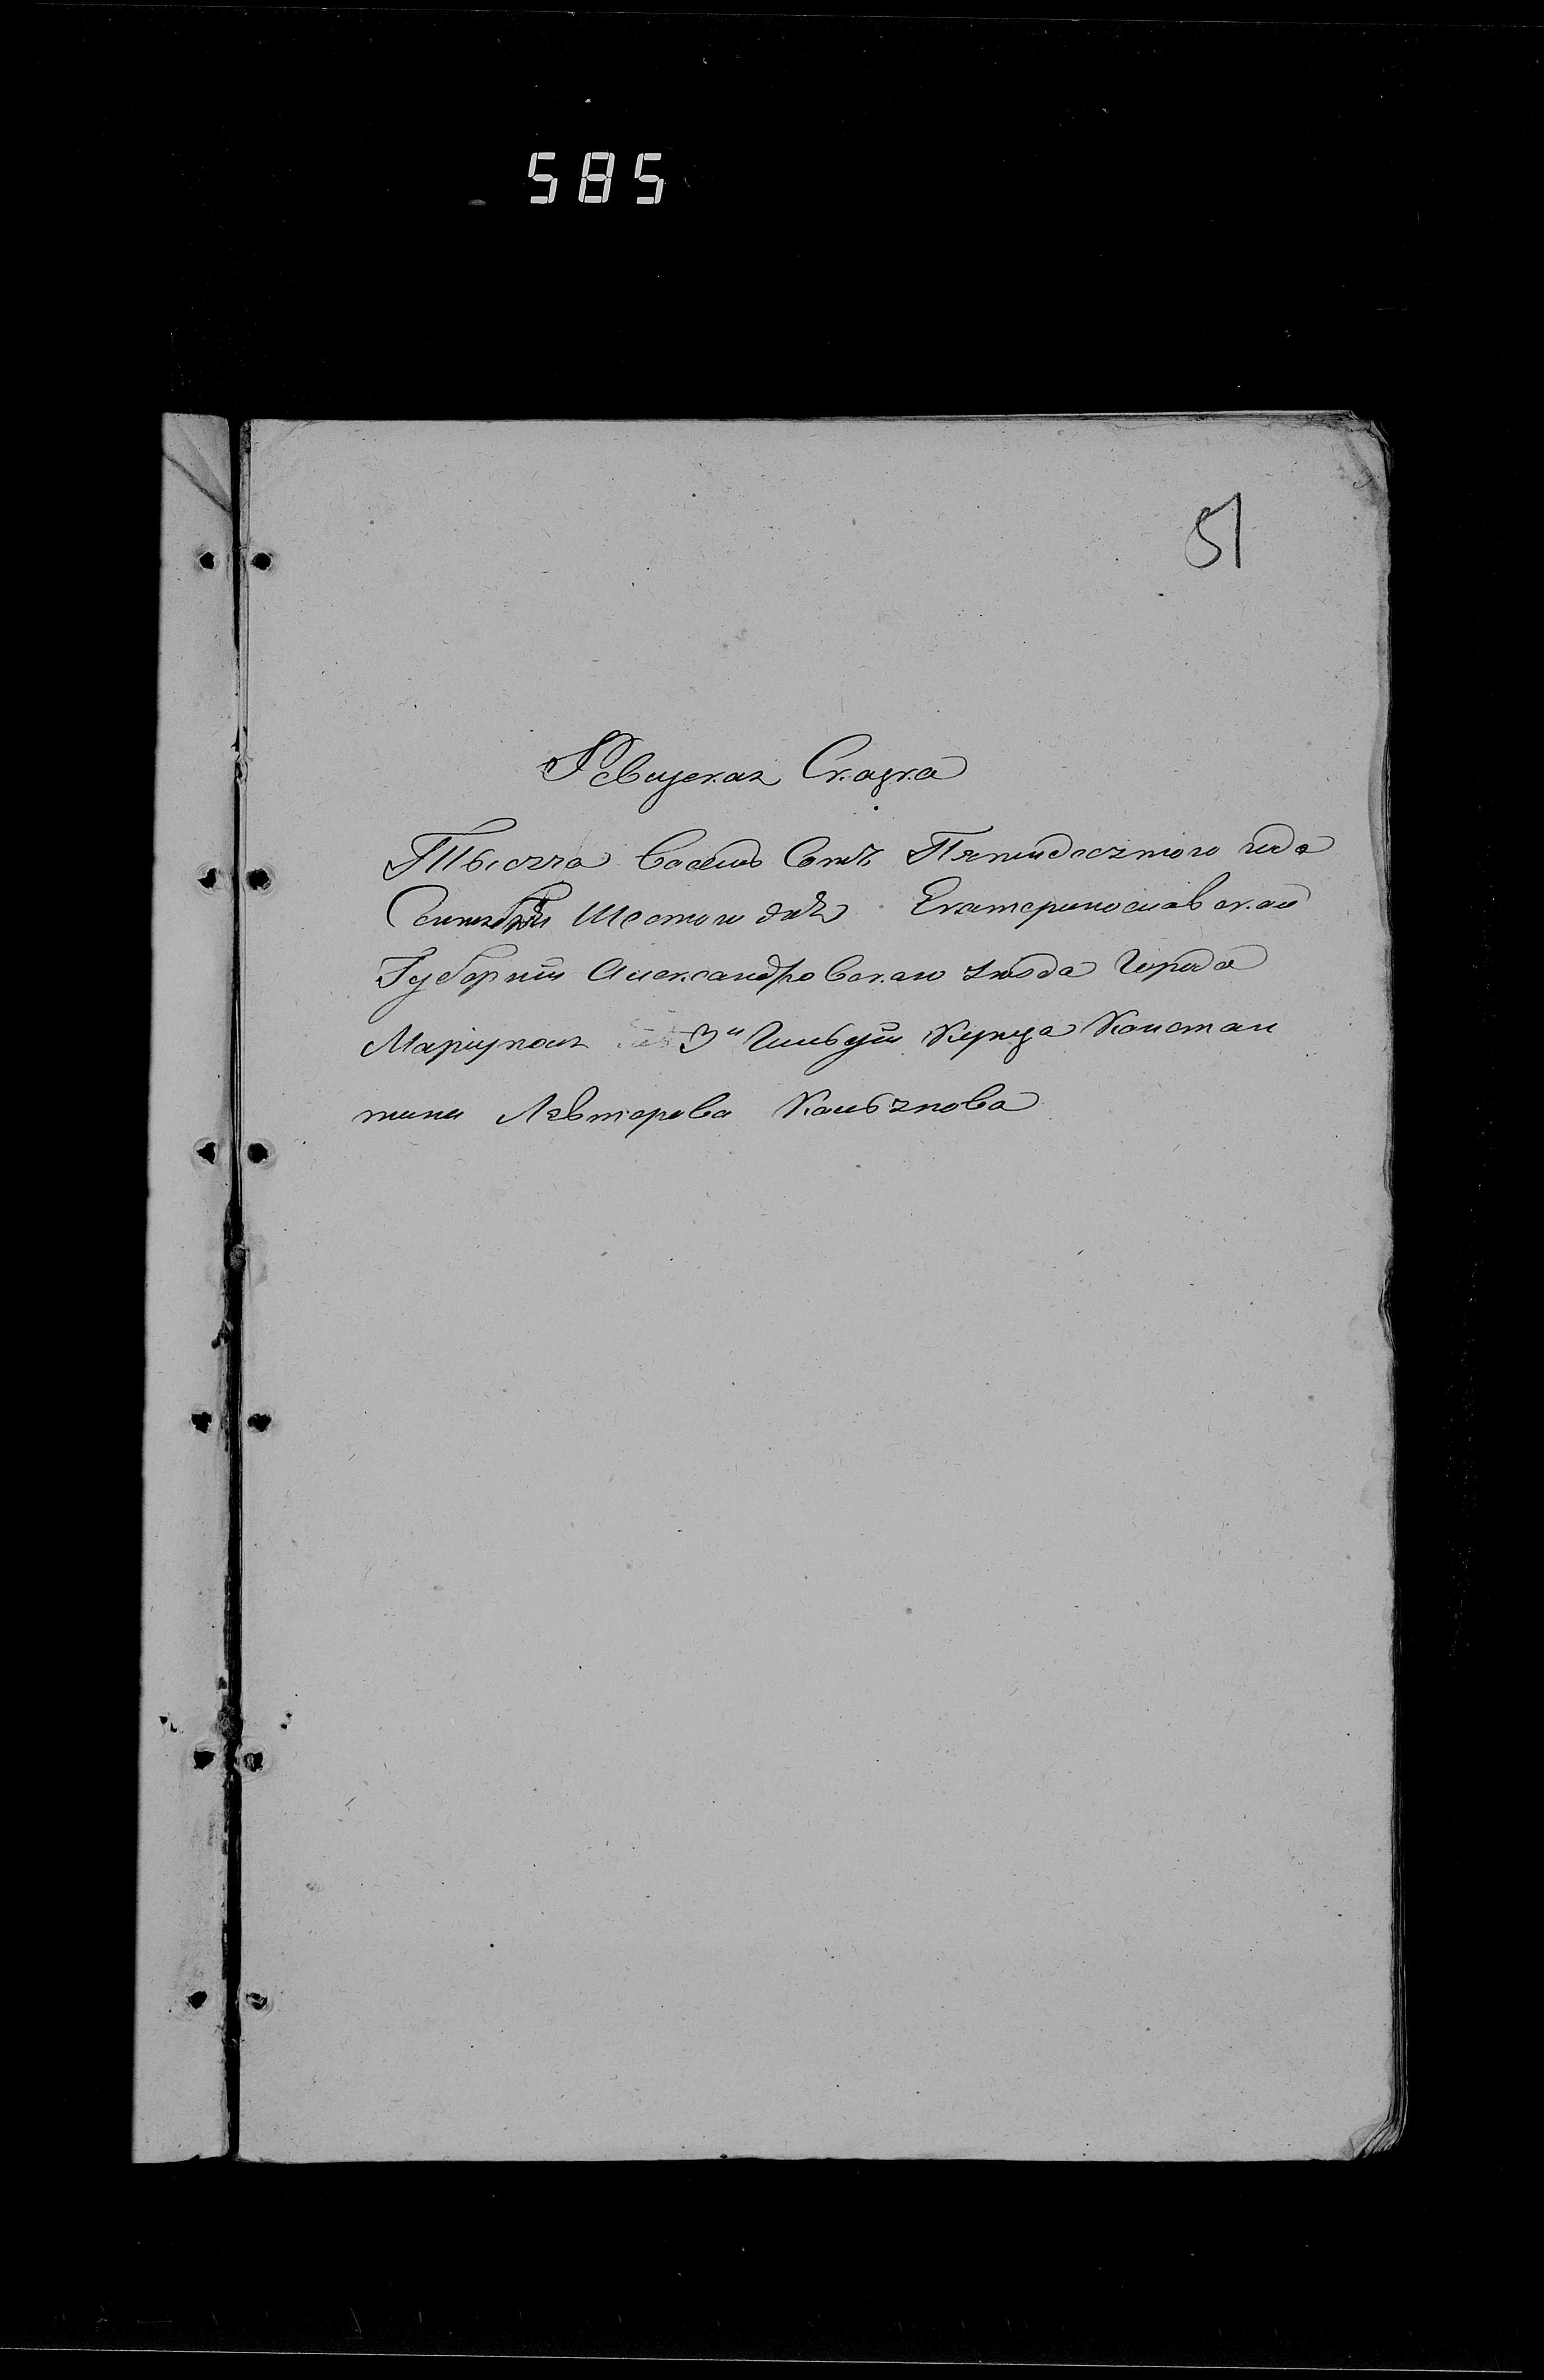 585
51
Ревизская Сказка
Тысяча восемь Сотъ Пятидесятого года
Сентября Шестого дня Екатеринославской
Губернии Александровскаго уезда Города
Мариуполя 3й Гильдии Купца Констан
тина Левтерова Кальянова